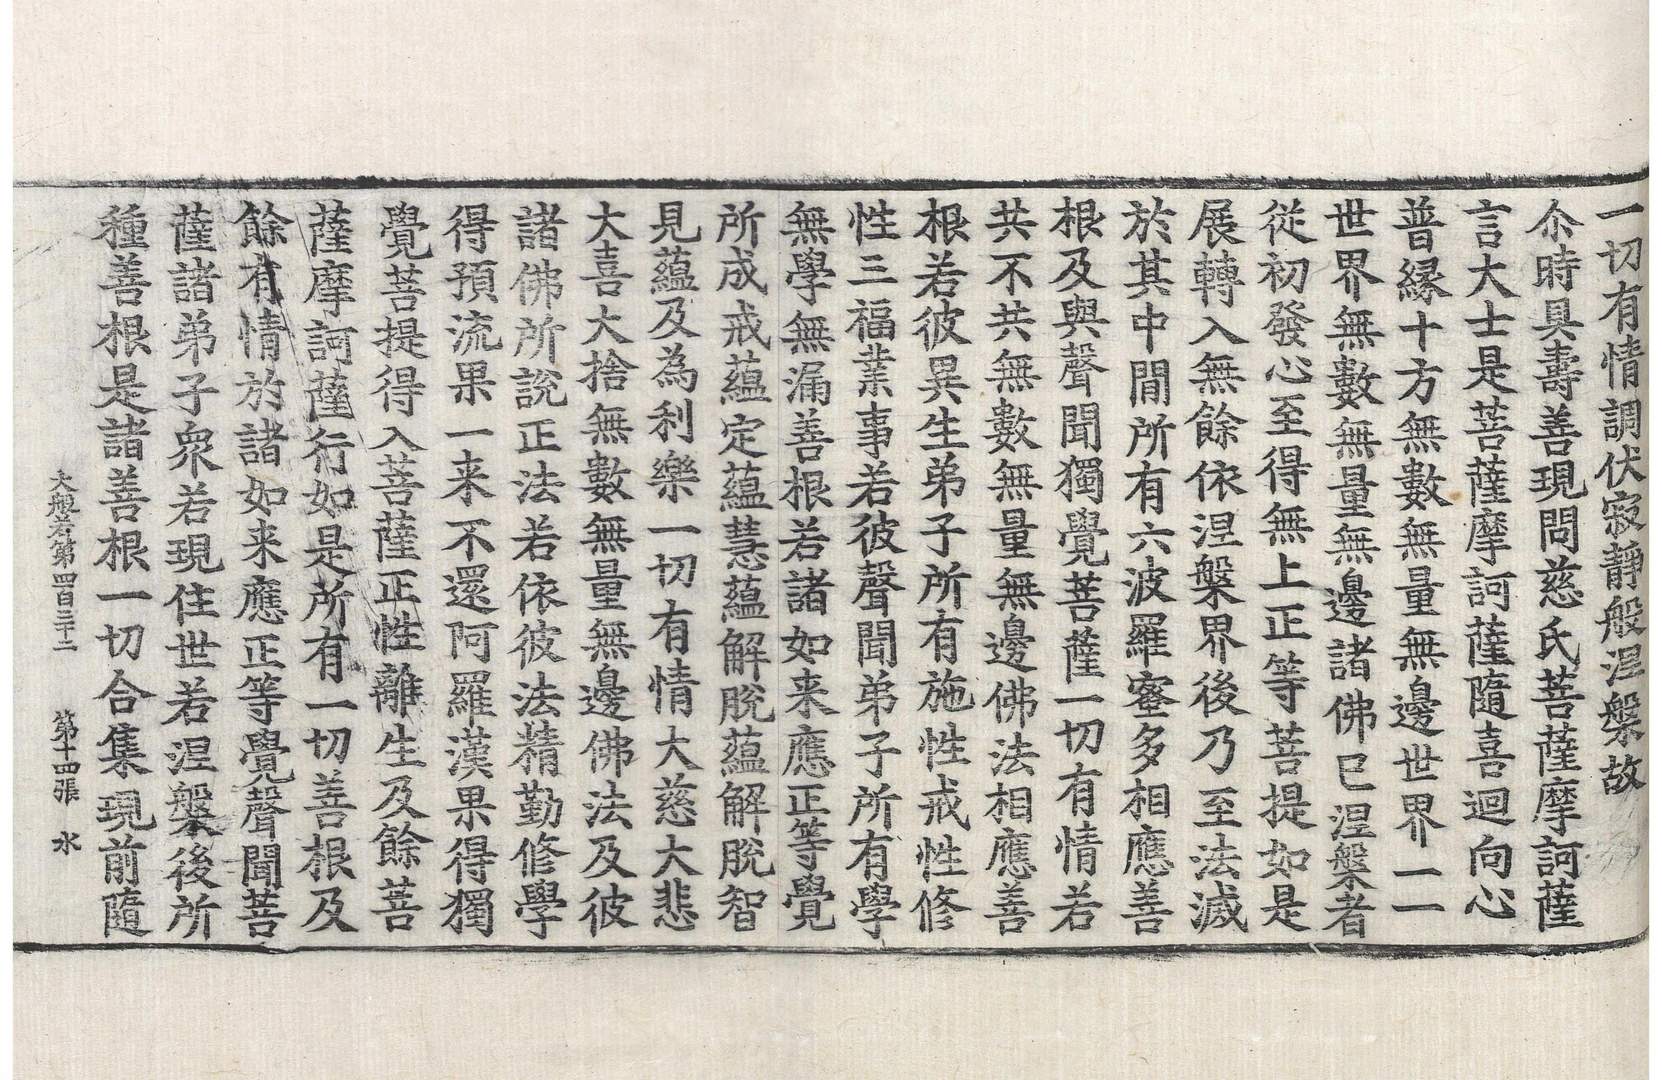 一切有情調伏寂靜般涅槃故
尒時具壽善現問慈氏菩薩摩訶薩
言大士是菩薩摩訶薩隨喜迴向心
普緣十方無數無量無邊世界一一
世界無數無量無邊諸佛已涅槃者
從初發心至得無上正等菩提如是
展轉入無餘依涅槃界後乃至法滅
於其中閒所有六波羅蜜多相應善
根及與聲聞獨覺菩薩一切有情若
共不共無數無量無邊佛法相應善
根若彼異生弟子所有施性戒性修
性三福業事若彼聲聞弟子所有學
無學無漏善根若諸如来應正等覺
所成戒蘊定蘊慧蘊解脫蘊解脫智
見蘊及為利樂一切有情大慈大悲
大喜大捨無數無量無邊佛法及彼
諸佛所說正法若依彼法精勤修學
得預流果一来不還阿羅漢果得獨
覺菩提得入菩薩正性離生及餘菩
薩摩訶薩行如是所有一切善根及
餘有情於諸如来應正等覺聲聞菩
薩諸弟子衆若現住世若涅槃後所
種善根是諸善根一切合集現前隨
大般若第四百三十二 第十四張 水